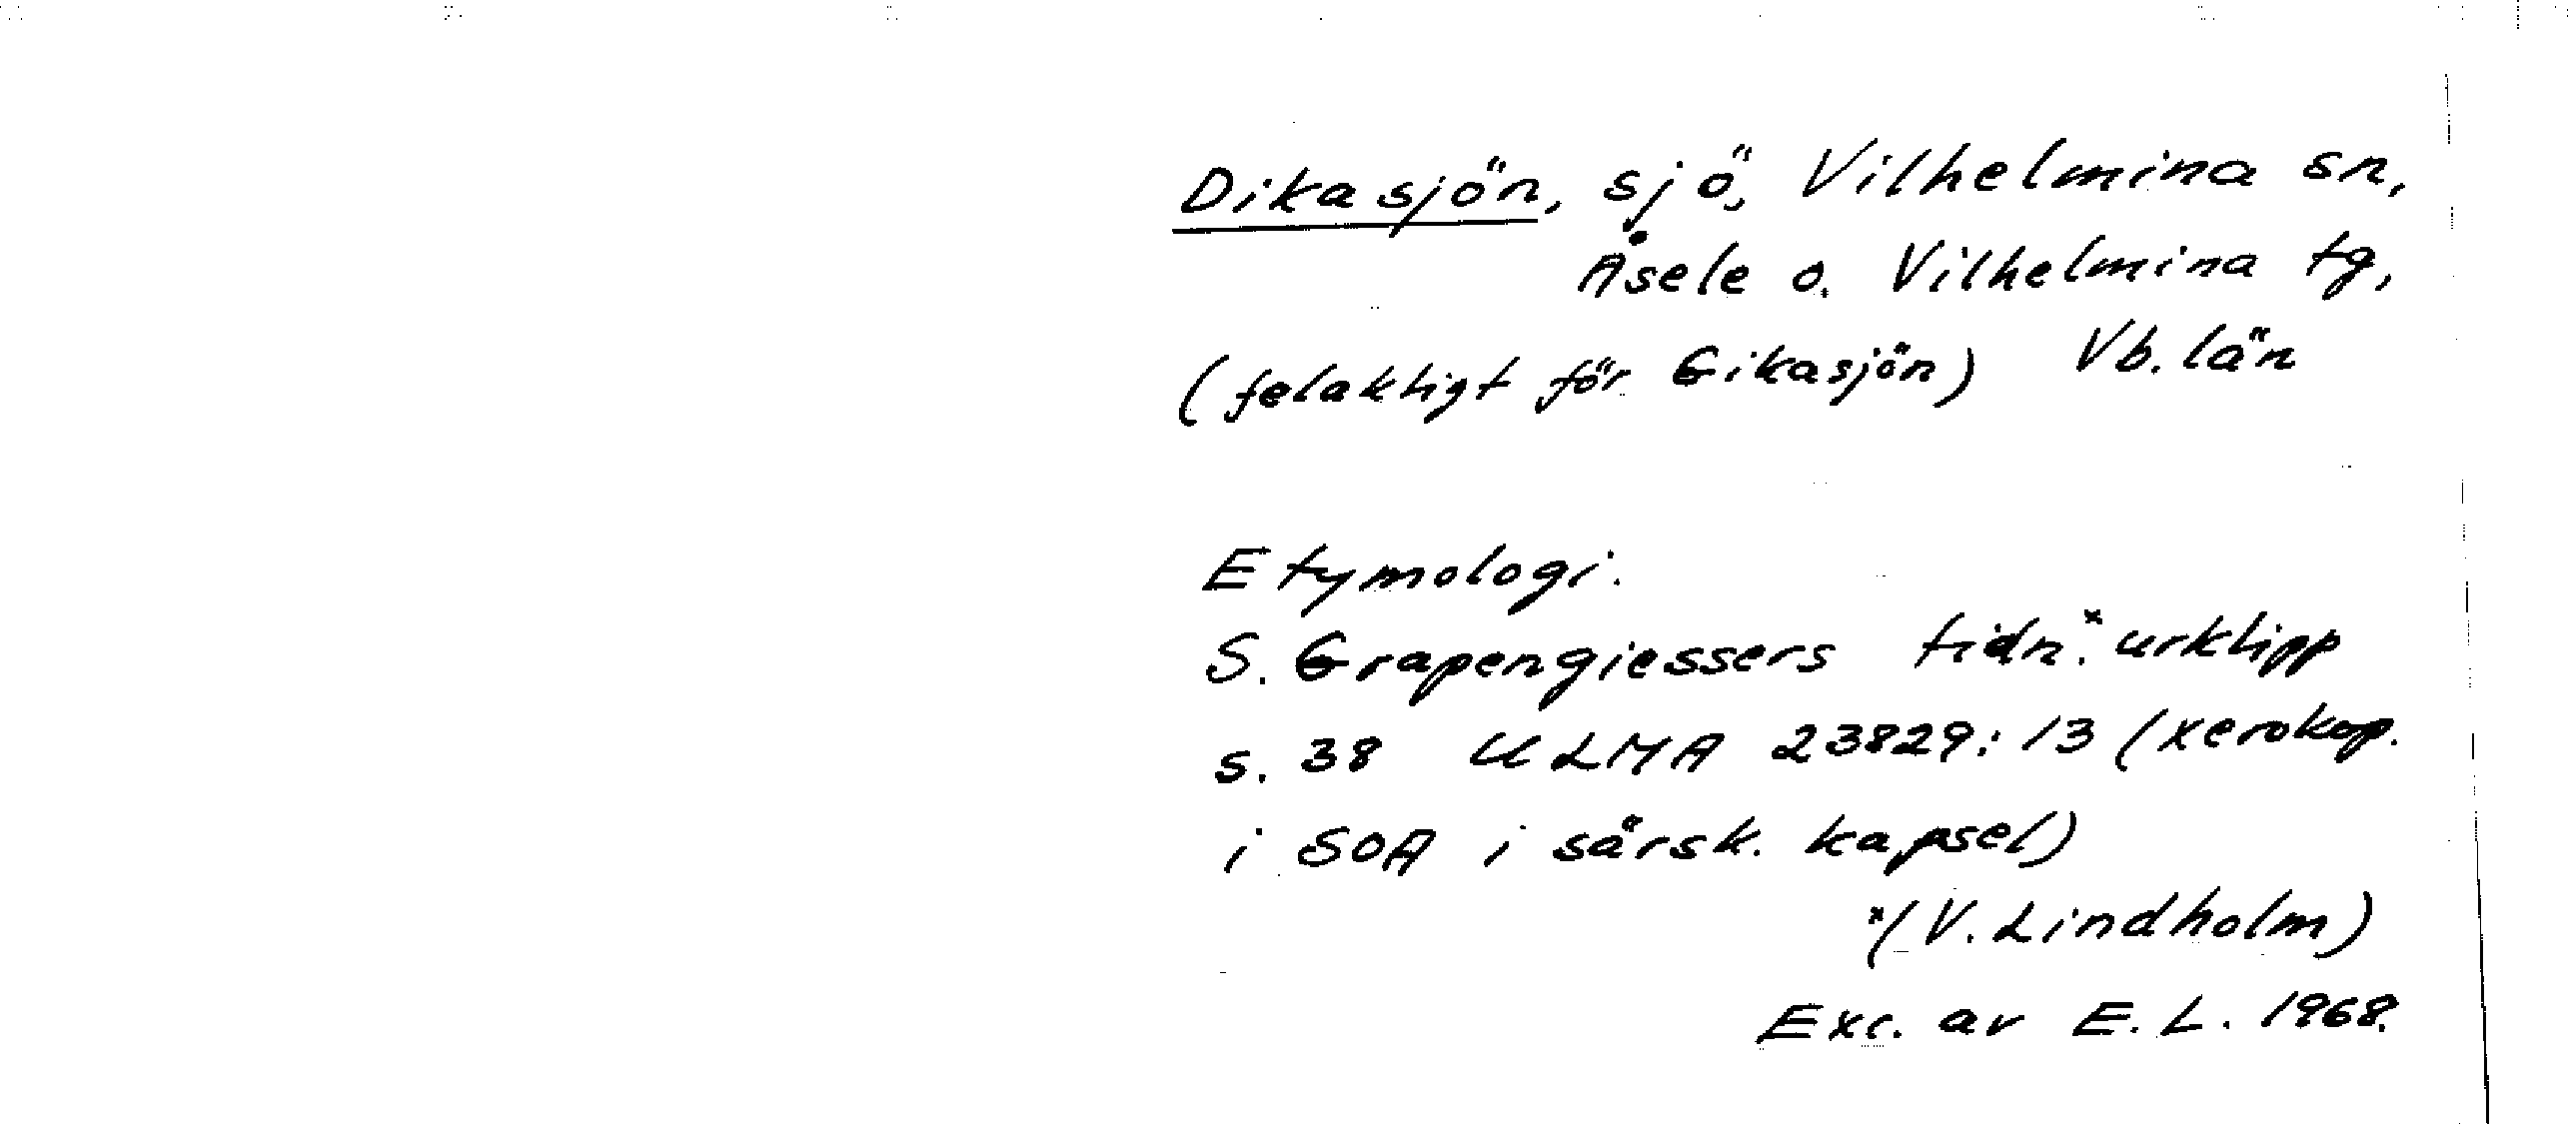 Dikasjön, sjö, Vilhelmina sn,
Åsele o. Vilhelmina tg,
(felaktigt för Gikasjön) Vb. län
Etymologi.
S. Grapengiessers tidn.ˣ urklipp
s. 38 ULMA 23829:13 (xerokop.
i SOA i särsk. kapsel)
ˣ(V. Lindholm)
Exc. av E. L. 1968.